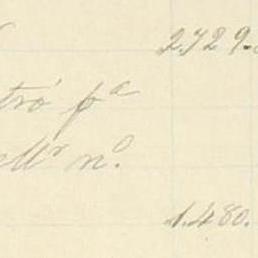 2.729.
tró pª
Mr nº.
1.480.